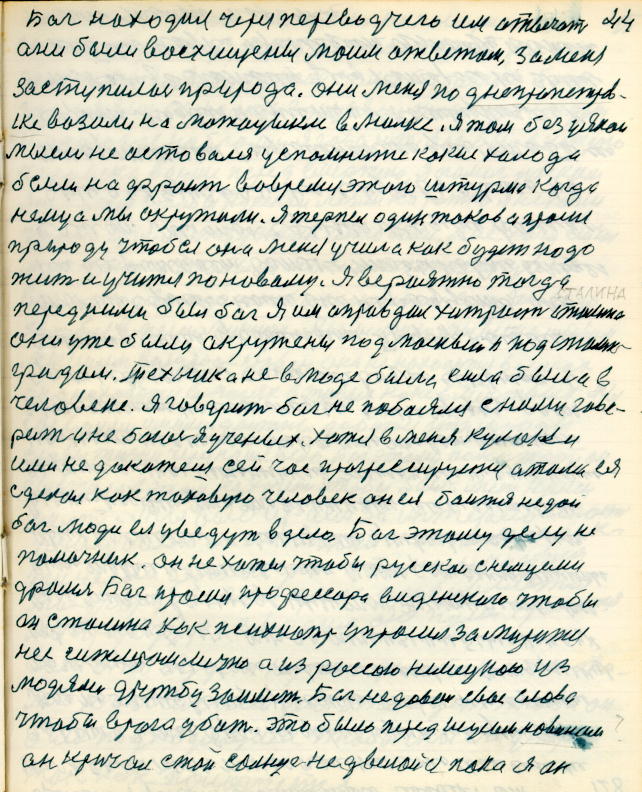 Бог находил через переводчего им отвечат 44
они были восхищены моим ответом, за меня
заступилас природа. они меня по днепропетров-
ске возили на в Я там без
мысли не оставался успомните какие холода
были на фронт вовремя этого штурма когда
немца мы окружали. Я терпел один таков а просил
природу чтобы она меня учила как будет надо
жит и учится по новаму. Я вероятно тогда
СТАЛИНА
перед ними был бог Я им оправдал сталина
они уже были окружены под москвой и под сталин-
градом. Техника не в моде была, сила была в
человеке. Я говорит бог не побоялся с ними гово-
рит и не богося ученых. хотя в меня кулаки
ими не докажеш сей час прогрессируеш атом ея
сделал как таковую человек он ея боится недай
бог люди ея уведут в дело. Бог этому делу не
помочник. он не хотел чтобы русской с немцами
дрался Бог просил профессора виденского чтобы
он сталина как психиатр упросил замириться
не с гитлером лично а из россию немецкою из
людями дружбу Бог недовал свое слова
чтобы врога убит. это было перед ?
он кричал стой солнце не двигайся пока я ан